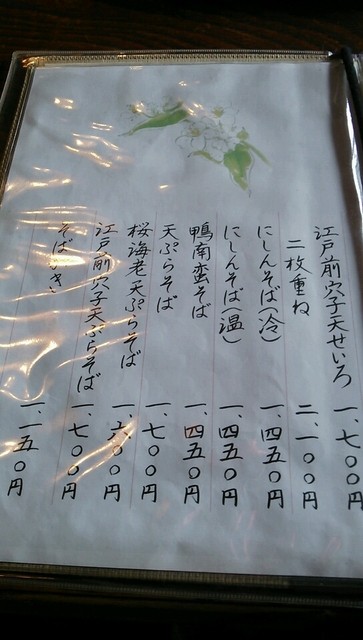 江戸前穴子天せいろ 一、七〇〇円
二枚重ね 二、一〇〇円
にしんそば(冷) 一、四五〇円
にしんそば(温) 一、四五〇円
鴨南蛮そば 一、四五〇円
天ぷらそば 一、七〇〇円
桜海老天ぷらそば 一、六〇〇円
江戸前穴子天ぷらそば 一、七〇〇円
そばがき 一、一五〇円